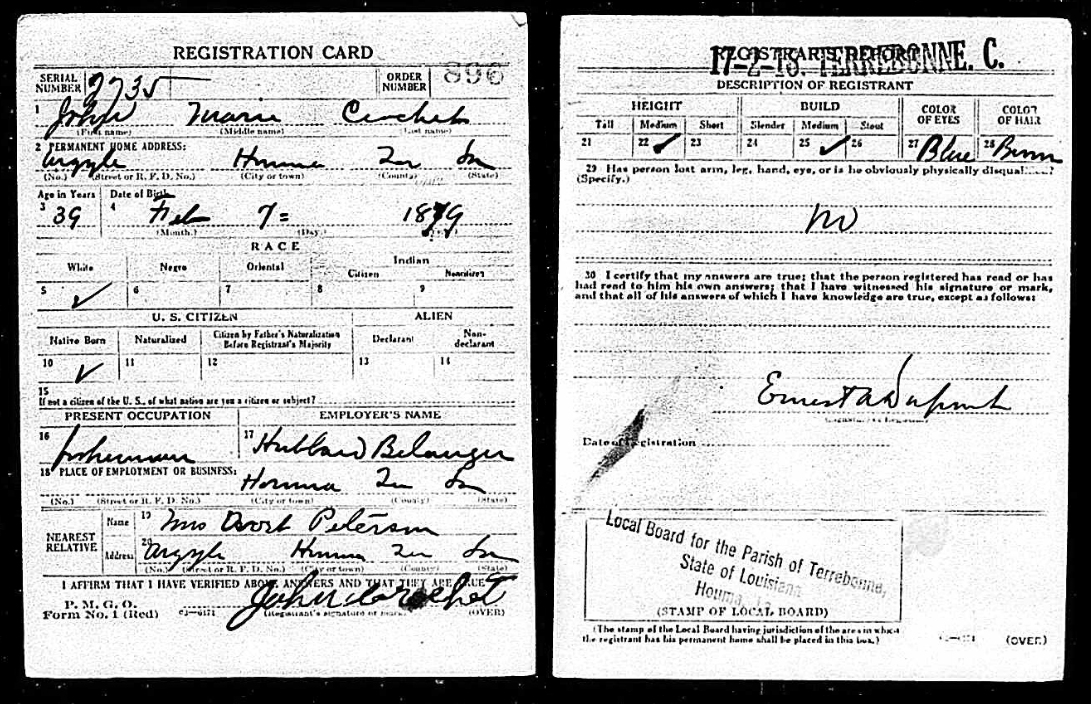 REGISTRATION CARD
SERIAL NUMBER 2735 ORDER NUMBER 896
1 John Marie Crochet
(First name) (Middle name) (Last name)
2 PERMANENT HOME ADDRESS:
Argyle Houma Ter La
(No.) (Street or R. F. D. No.) (City or town) (County) (State)
Age in Years Date of Birth
3 39 4 Feb 7 = 1879
(Month.) (Day.)
RACE
White Negro Oriental Indian
Citizen Noncitizen
5 ✓ 6 7 8 9
U. S. CITIZEN ALIEN
Native Born Naturalized Citizen by Father's Naturalization Before Registrant's Majority Declarant Non-declarant
10 ✓ 11 12 13 14
15
If not a citizen of the U. S., of what nation are you a citizen or subject?
PRESENT OCCUPATION EMPLOYER'S NAME
16 fisherman 17 Hubbard Belanger
18 PLACE OF EMPLOYMENT OR BUSINESS:
Houma Ter La
(No.) (Street or R. F. D. No.) (City or town) (County) (State)
NEAREST RELATIVE
Name 19 Mrs Peterson
Address 20 Argyle Houma Ter La
(No.) (Street or R. F. D. No.) (City or town) (County) (State)
I AFFIRM THAT I HAVE VERIFIED ABOVE ANSWERS AND THAT THEY ARE TRUE
P. M. G. O.
Form No. 1 (Red) 03—6171 John M Crochet
(Registrant's signature or mark) (OVER)
REGISTRAR'S REPORT
17-2-16. TERREBONNE. C.
DESCRIPTION OF REGISTRANT
HEIGHT BUILD COLOR OF EYES COLOR OF HAIR
Tall Medium Short Slender Medium Stout
21 22 ✓ 23 24 25 ✓ 26 27 Blue 28 Brown
29 Has person lost arm, leg, hand, eye, or is he obviously physically disqual
(Specify.)
No
30 I certify that my answers are true; that the person registered has read or has
had read to him his own answers; that I have witnessed his signature or mark,
and that all of his answers of which I have knowledge are true, except as follows:
Ernest A Dupont
Date of Registration
Local Board for the Parish of Terrebonne,
State of Louisiana
Houma, La.
(STAMP OF LOCAL BOARD)
(The stamp of the Local Board having jurisdiction of the area in which
the registrant has his permanent home shall be placed in this box.) (OVER)